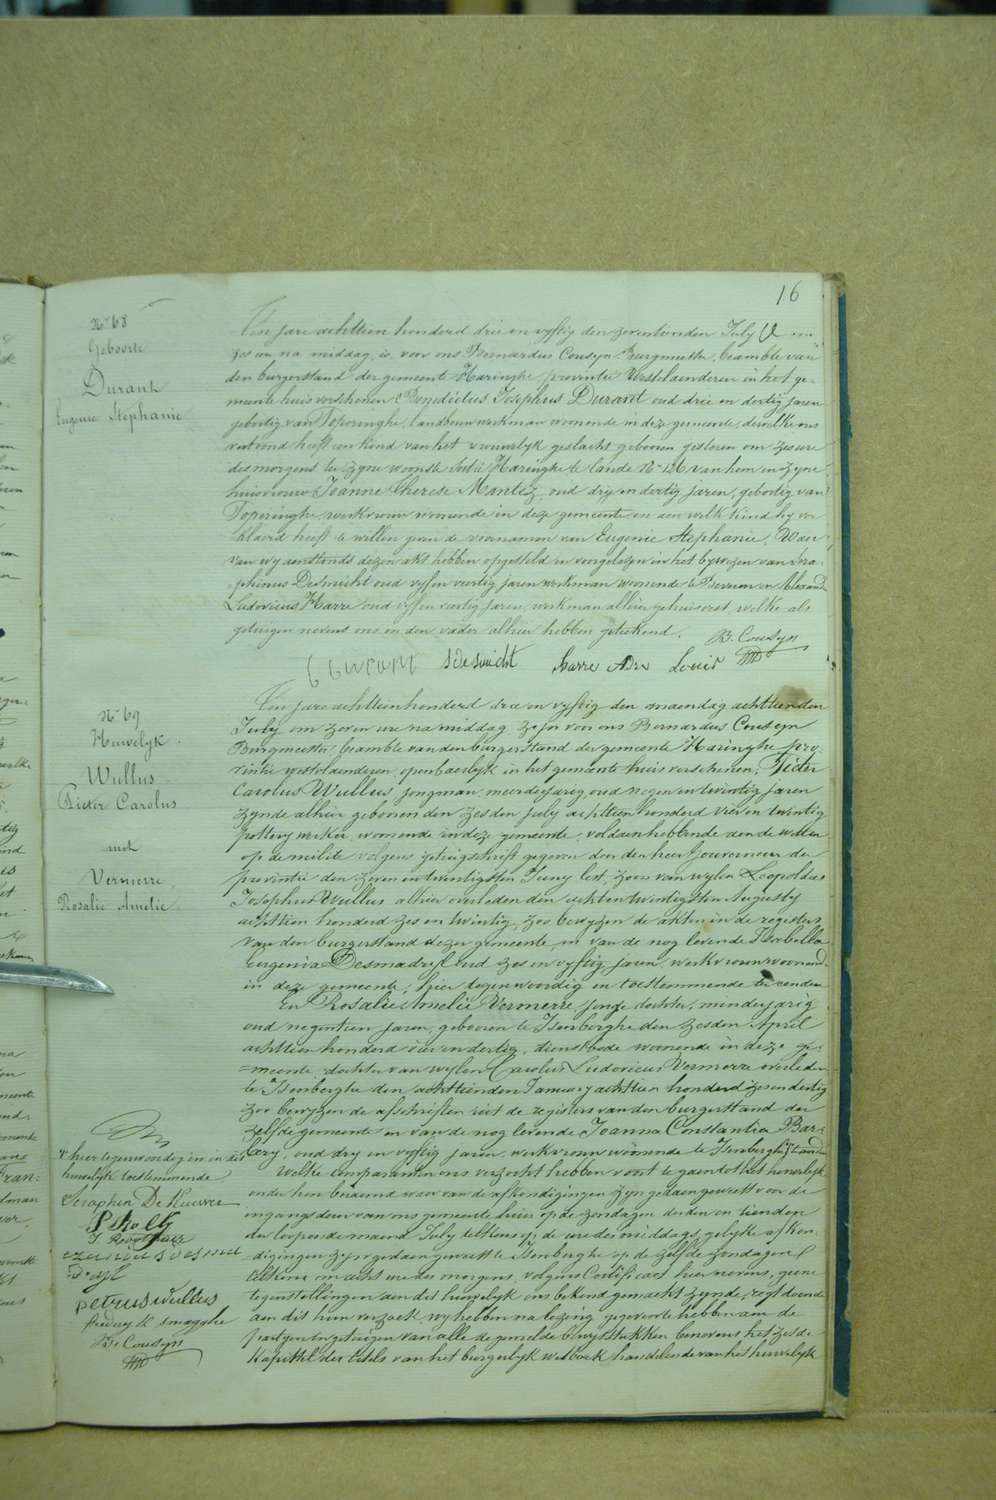 16
N° 68
Geboorte
Durant
Eugenie Stephanie
Ten jare achttien honderd drie en vyftig den zeventienden July
zes ure na middag, is voor ons Bernardus Cousyn Burgmeester, beambte van
den burgerstand der gemeente Haringhe provintie Westvlaenderen in het ge-
meente huis verschenen Benedictus Josephus Durant oud drie en dertig jaren
geboortig van Poperinghe, landbouwwerkman wonende in deze gemeente, dewelke ons
vertoond heeft een kind van het vrouwelyk geslacht geboren gisteren om zes ure
des morgens ten zyne woonste binst Haringhe te lande N° 126 van hem en zyne
huisvrouw Joanne Therese Mantez, oud dry en dertig jaren, geboortig van
Poperinghe werkvrouw wonende in deze gemeente en aen welk kind hy ver-
klaerd heeft te willen geven de voornamen van Eugenie Stephanie. Waer
van wy aenstonds dezen akt hebben opgesteld en voorgelezen in het bywezen van Sera-
phinus Desmicht oud vyf en veertig jaren werkman wonende te en Alexand
Ludovicus Harre oud vyf en veertig jaren, werkman alhier gehuisvest, welke als
getuigen nevens ons en den vader alhier hebben geteekend.
B. Cousyn
Sdesmicht harre Alex Louis
N° 69
Huwelyk
Wullus
Pieter Carolus
met
Vermerre
Rosalie Amelie
Ten jare achttienhonderd drie en vyftig den maendag achttienden
July om zeven ure na middag zyn voor ons Bernardus Cousyn
Burgmeester beambte van den burgerstand der gemeente Haringhe pro-
vintie westvlaenderen, openbaerlyk in het gemeente huis verschenen; Pieter
Carolus Wullus jongman, meerderjarig, oud negen en twintig jaren
zynde alhier geboren den zesden july achttien honderd vier en twintig
pottery werker, wonende in deze gemeente, voldaen hebbende aen de wetten
op de militie volgens getuigschrift gegeven door den heer Gouverneur der
provintie den zeven en twintigsten Juny lest, zoon van wylen Leopoldus
Josephus Wullus alhier overleden den achten twintigsten Augusty
achttien honderd zes en twintig, zoo bewyzen de akten in de registers
van den burgerstand dezer gemeente, en van de nog levende Isabella
Eugenia Desmadryl oud zes en vyftig jaren, werkvrouw wonend
in deze gemeente, hier tegenwoordig en toestemmende ter eender
En Rosalie Amelie Vermerre jonge dochter, minderjarig
oud negentien jaren, geboren te Isenberghe den zesden April
achttien honderd vier en dertig, dienstbode wonende in deze ge-
=meente, dochter van wylen Carolus Ludovicus Vermerre overleden
te Isenberghe den achttienden January achttien honderd zes en dertig
zoo bewyzen de afschriften uit de registers van den burgerstand der
zelfde gemeente en van de nog levende Joanna Constantia Bar-
bery, oud dry en vyftig jaren werkvrouw wonende te Isenberghe
Welke comparanten ons verzocht hebben voort te gaen tot het huwelyk
onder hen beraemd waervan de afkondigingen zyn gedaen geweest voor de
ingangsdeur van ons gemeente huis op de zondagen derden en tienden
der loopende maend July telkens op de ure des middags, gelyke afkon-
digingen zyn gedaen geweest te Isenberghe op de zelfde zondagen
telkens ure des morgens, volgens Certificaet hier nevens, geene
tegenstellingen aen dit huwelyk ons bekend gemaekt zynde, regt doende
aen dit hun verzoek, wy hebben na lezing gegeven te hebben aen de
partyen en getuigen van alle de gemelde bewysstukken benevens het zesde
kapittel des titels van het burgerlyk wetboek handelende van het huwelyk
hier tegenwoordig en in dit
huwelyk toestemmende
Seraphin De Kuever
petrus wullus
B. Cousyn